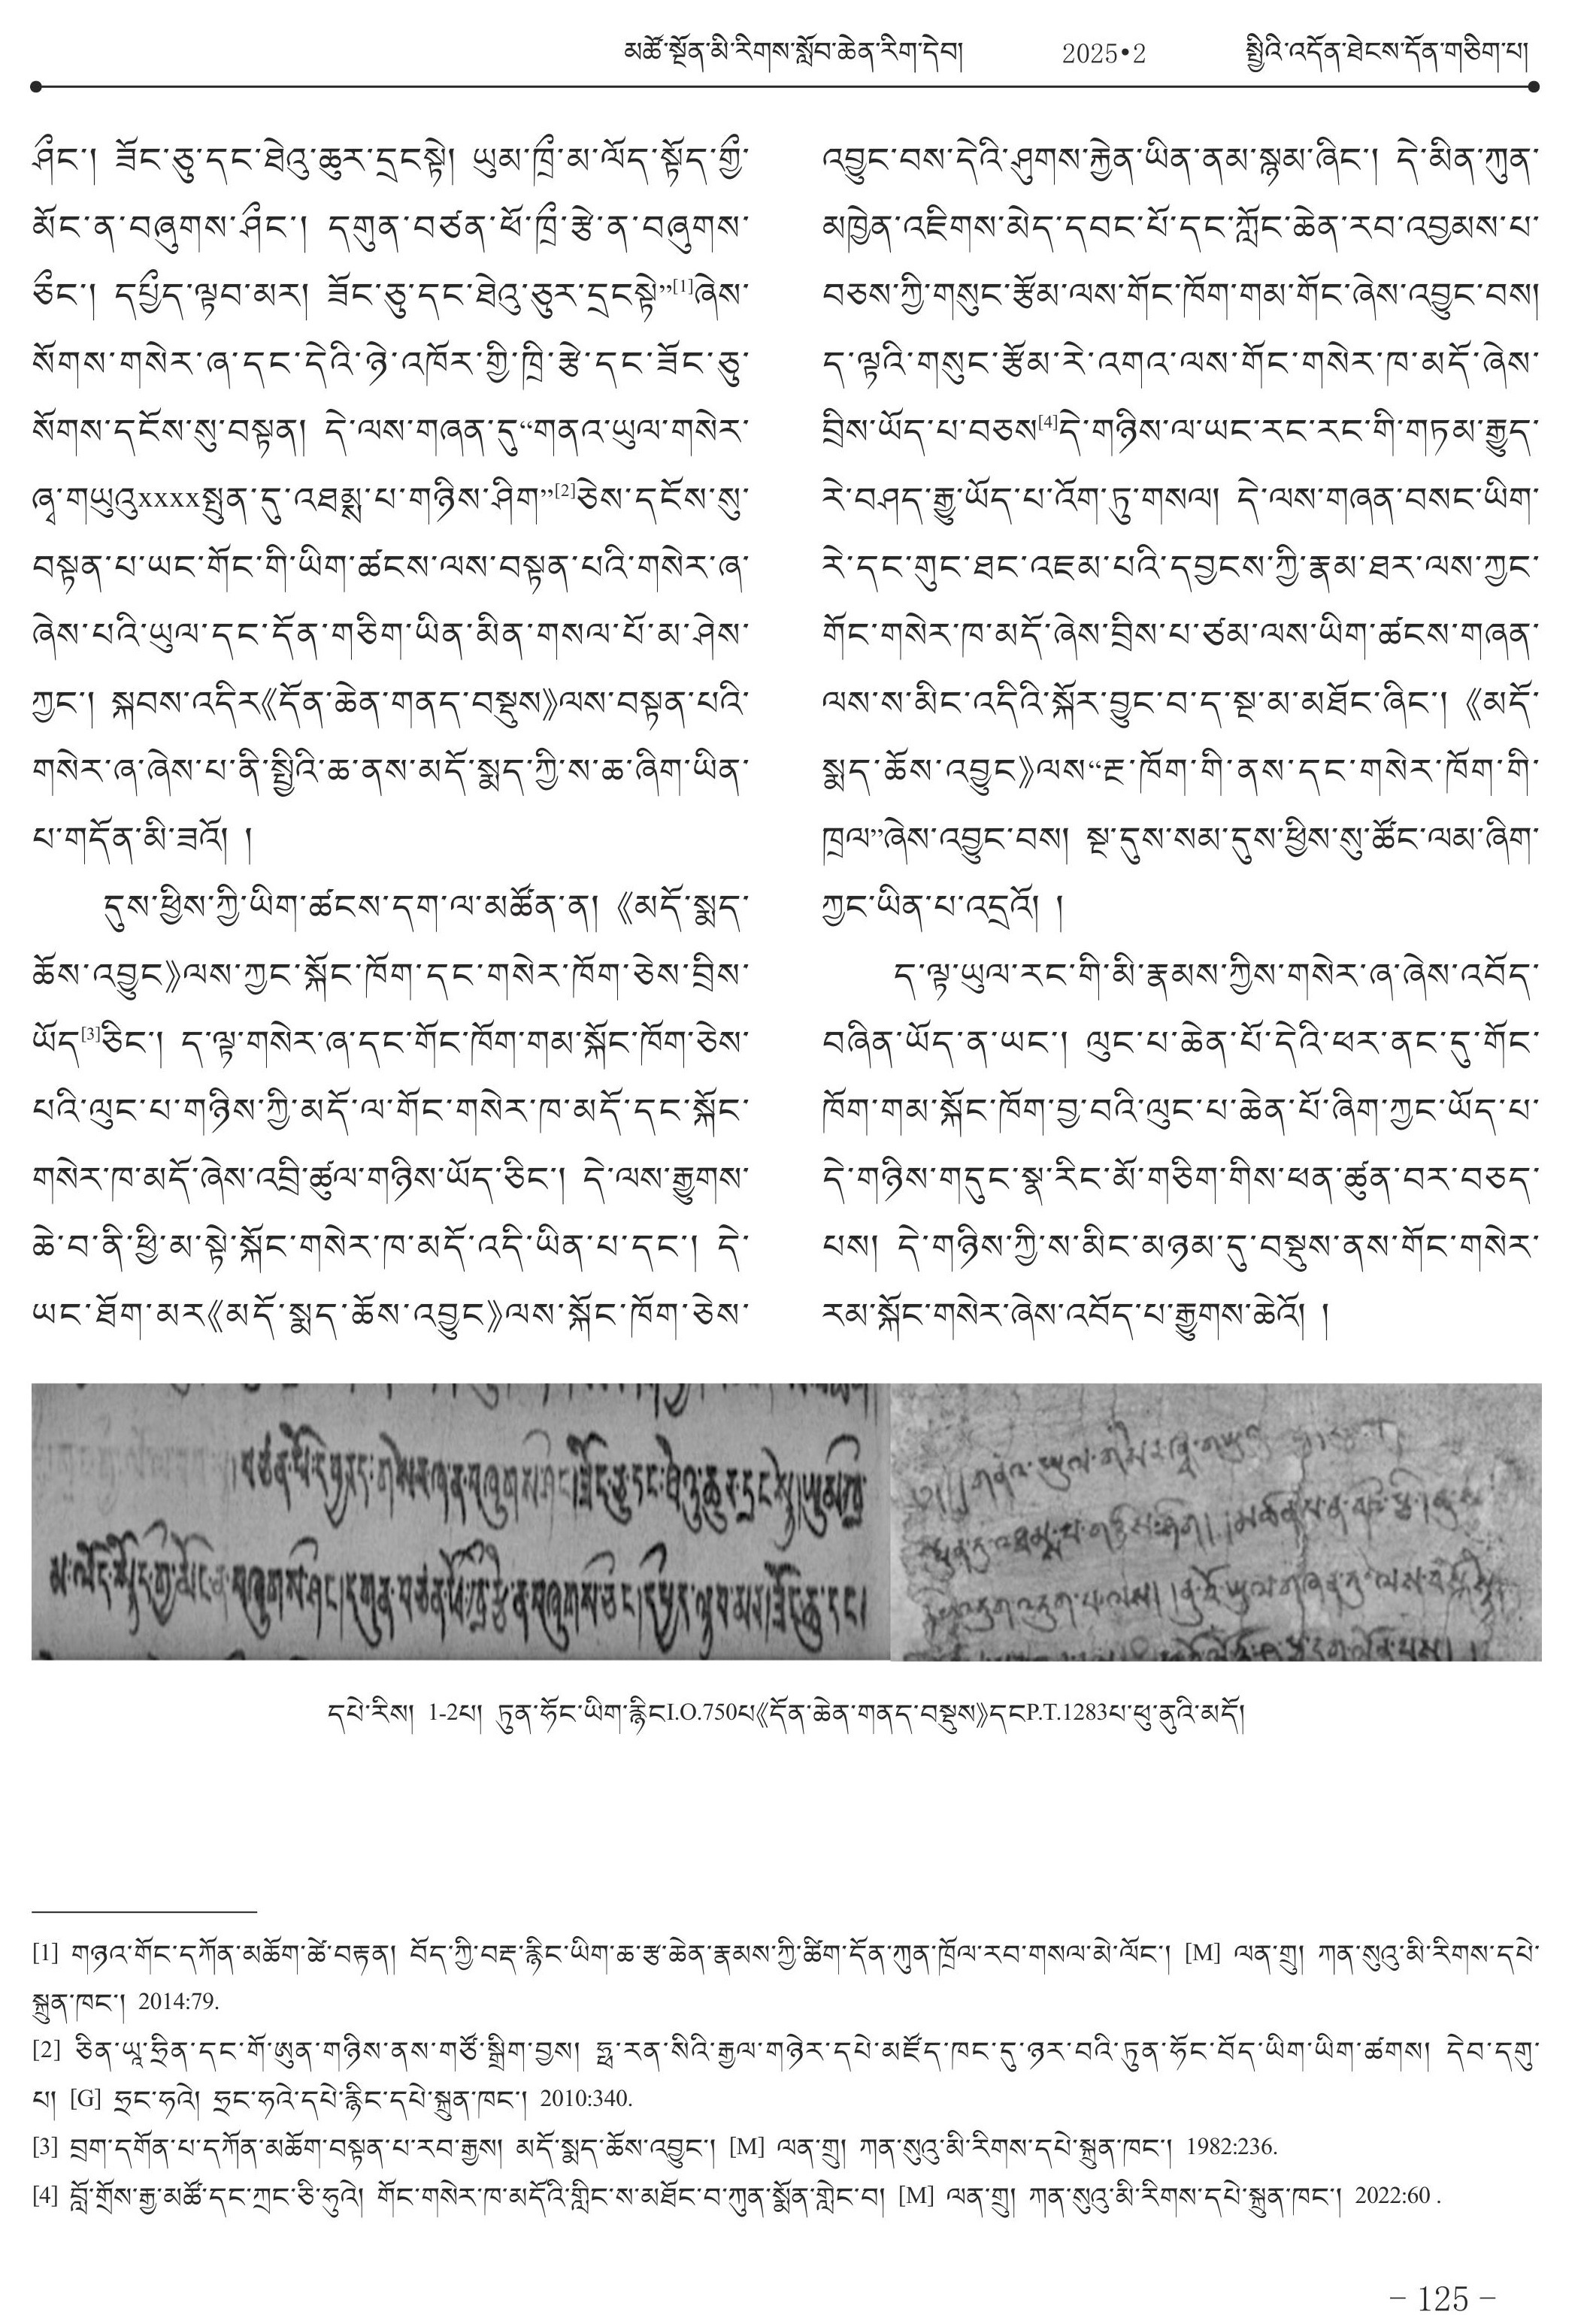 མཚོ་སྔོན་མི་རིགས་སློབ་ཆེན་རིག་དེབ། 2025•2 སྤྱིའི་འདོན་ཐེངས་དོན་གཅིག་པ།
ཤྀང་། ཟོང་ཅུ་དང་ཐེའུ་ཆུར་དྲངསྟེ། ཡུམ་ཁྲྀ་མ་ལོད་སྟོད་གྱྀ་
མོང་ན་བཞུགས་ཤྀང་། དགུན་བཙན་ཕོ་ཁྲྀ་རྩེ་ན་བཞུགས་
ཅྀང་། དཔྱྀད་ལྟབ་མར། ཟོང་ཅུ་དང་ཐེའུ་ཅུར་དྲངསྟེ”[1]ཞེས་
སོགས་གསེར་ཞ་དང་དེའི་ཉེ་འཁོར་གྱི་ཁྲི་རྩེ་དང་ཟོང་ཅུ་
སོགས་དངོས་སུ་བསྟན། དེ་ལས་གཞན་དུ“གནའ་ཡུལ་གསེར་
ཞྭ་གཡུའུxxxxསྤུན་དུ་འཐམྨ་པ་གཉིས་ཤིག”[2]ཅེས་དངོས་སུ་
བསྟན་པ་ཡང་གོང་གི་ཡིག་ཚངས་ལས་བསྟན་པའི་གསེར་ཞ་
ཞེས་པའི་ཡུལ་དང་དོན་གཅིག་ཡིན་མིན་གསལ་པོ་མ་ཤེས་
ཀྱང་། སྐབས་འདིར《དོན་ཆེན་གནད་བསྡུས》ལས་བསྟན་པའི་
གསེར་ཞ་ཞེས་པ་ནི་སྤྱིའི་ཆ་ནས་མདོ་སྨད་ཀྱི་ས་ཆ་ཞིག་ཡིན་
པ་གདོན་མི་ཟའོ། །
དུས་ཕྱིས་ཀྱི་ཡིག་ཚངས་དག་ལ་མཚོན་ན། 《མདོ་སྨད་
ཆོས་འབྱུང》ལས་ཀྱང་སྐོང་ཁོག་དང་གསེར་ཁོག་ཅེས་བྲིས་
ཡོད[3]ཅིང་། ད་ལྟ་གསེར་ཞ་དང་གོང་ཁོག་གམ་སྐོང་ཁོག་ཅེས་
པའི་ལུང་པ་གཉིས་ཀྱི་མདོ་ལ་གོང་གསེར་ཁ་མདོ་དང་སྐོང་
གསེར་ཁ་མདོ་ཞེས་འབྲི་ཚུལ་གཉིས་ཡོད་ཅིང་། དེ་ལས་རྒྱུགས་
ཆེ་བ་ནི་ཕྱི་མ་སྟེ་སྐོང་གསེར་ཁ་མདོ་འདི་ཡིན་པ་དང་། དེ་
ཡང་ཐོག་མར《མདོ་སྨད་ཆོས་འབྱུང》ལས་སྐོང་ཁོག་ཅེས་
འབྱུང་བས་དེའི་ཤུགས་རྐྱེན་ཡིན་ནམ་སྙམ་ཞིང་། དེ་མིན་ཀུན་
མཁྱེན་འཇིགས་མེད་དབང་པོ་དང་ཀློང་ཆེན་རབ་འབྱམས་པ་
བཅས་ཀྱི་གསུང་རྩོམ་ལས་གོང་ཁོག་གམ་གོང་ཞེས་འབྱུང་བས།
ད་ལྟའི་གསུང་རྩོམ་རེ་འགའ་ལས་གོང་གསེར་ཁ་མདོ་ཞེས་
བྲིས་ཡོད་པ་བཅས[4]དེ་གཉིས་ལ་ཡང་རང་རང་གི་གཏམ་རྒྱུད་
རེ་བཤད་རྒྱུ་ཡོད་པ་འོག་ཏུ་གསལ། དེ་ལས་གཞན་བསང་ཡིག་
རེ་དང་གུང་ཐང་འཇམ་པའི་དབྱངས་ཀྱི་རྣམ་ཐར་ལས་ཀྱང་
གོང་གསེར་ཁ་མདོ་ཞེས་བྲིས་པ་ཙམ་ལས་ཡིག་ཚངས་གཞན་
ལས་ས་མིང་འདིའི་སྐོར་བྱུང་བ་ད་སྔ་མ་མཐོང་ཞིང་། 《མདོ་
སྨད་ཆོས་འབྱུང》ལས“རྔ་ཁོག་གི་ནས་དང་གསེར་ཁོག་གི་
ཁྲལ”ཞེས་འབྱུང་བས། སྔ་དུས་སམ་དུས་ཕྱིས་སུ་ཚོང་ལམ་ཞིག་
ཀྱང་ཡིན་པ་འདྲའོ། །
ད་ལྟ་ཡུལ་རང་གི་མི་རྣམས་ཀྱིས་གསེར་ཞ་ཞེས་འབོད་
བཞིན་ཡོད་ན་ཡང་། ལུང་པ་ཆེན་པོ་དེའི་ཕར་ནང་དུ་གོང་
ཁོག་གམ་སྐོང་ཁོག་བྱ་བའི་ལུང་པ་ཆེན་པོ་ཞིག་ཀྱང་ཡོད་པ་
དེ་གཉིས་གདུང་སྣ་རིང་མོ་གཅིག་གིས་ཕན་ཚུན་བར་བཅད་
པས། དེ་གཉིས་ཀྱི་ས་མིང་མཉམ་དུ་བསྡུས་ནས་གོང་གསེར་
རམ་སྐོང་གསེར་ཞེས་འབོད་པ་རྒྱུགས་ཆེའོ། །
དཔེ་རིས། 1-2པ། ཏུན་ཧོང་ཡིག་རྙིངI.O.750པ《དོན་ཆེན་གནད་བསྡུས》དངP.T.1283པ་ཕུ་ནུའི་མདོ།
[1] གཉའ་གོང་དཀོན་མཆོག་ཚེ་བརྟན། བོད་ཀྱི་བརྡ་རྙིང་ཡིག་ཆ་རྩ་ཆེན་རྣམས་ཀྱི་ཚིག་དོན་ཀུན་ཁྲོལ་རབ་གསལ་མེ་ལོང་། [M] ལན་གྲུ། ཀན་སུའུ་མི་རིགས་དཔེ་
སྐྲུན་ཁང་། 2014:79.
[2] ཅིན་ཡཱ་ཧྥིན་དང་གོ་ཨུན་གཉིས་ནས་གཙོ་སྒྲིག་བྱས། ཧྥ་རན་སིའི་རྒྱལ་གཉེར་དཔེ་མཛོད་ཁང་དུ་ཉར་བའི་ཏུན་ཧོང་བོད་ཡིག་ཡིག་ཚགས། དེབ་དགུ་
པ། [G] ཧྲང་ཧའེ། ཧྲང་ཧའེ་དཔེ་རྙིང་དཔེ་སྐྲུན་ཁང་། 2010:340.
[3] བྲག་དགོན་པ་དཀོན་མཆོག་བསྟན་པ་རབ་རྒྱས། མདོ་སྨད་ཆོས་འབྱུང་། [M] ལན་གྲུ། ཀན་སུའུ་མི་རིགས་དཔེ་སྐྲུན་ཁང་། 1982:236.
[4] བློ་གྲོས་རྒྱ་མཚོ་དང་ཀྲང་ཅི་ཧུའེ། གོང་གསེར་ཁ་མདོའི་གླིང་ས་མཐོང་བ་ཀུན་སྨོན་གླེང་བ། [M] ལན་གྲུ། ཀན་སུའུ་མི་རིགས་དཔེ་སྐྲུན་ཁང་། 2022:60 .
– 125 –